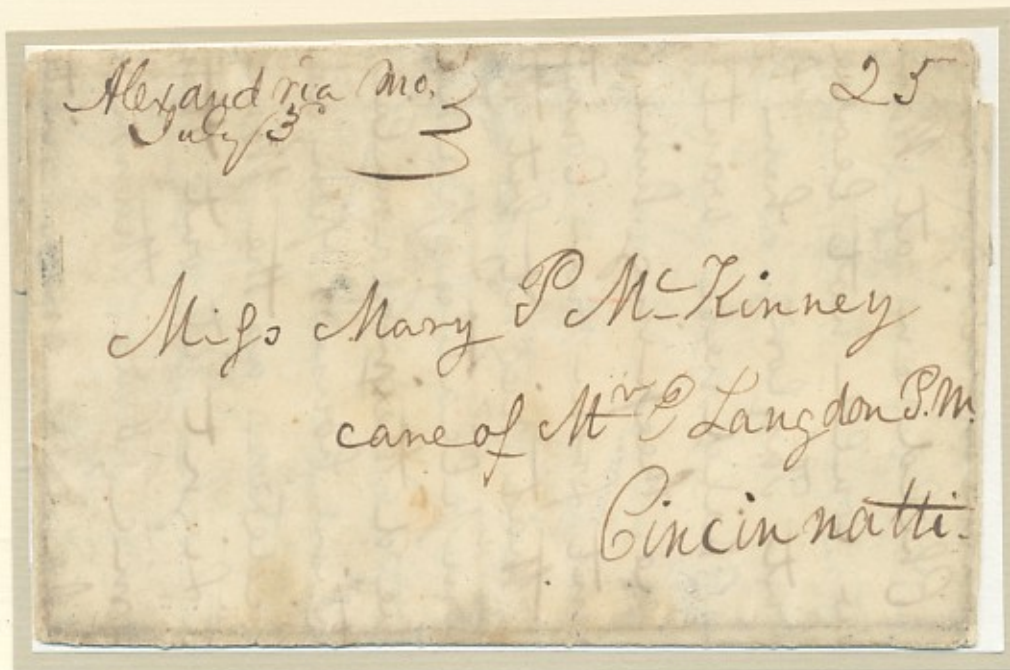 Alexandria Mo. 25
July 3
Miss Mary P McKinney
care of Mr E Langdon P.M.
Cincinnatti.